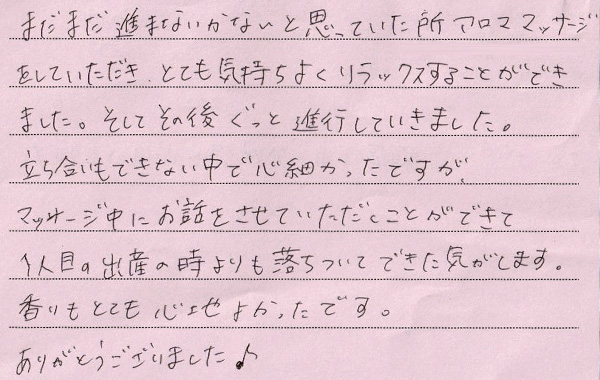 まだまだ進まないかないと思っていた所アロママッサージ
をしていただき、とても気持ちよくリラックスすることができ
ました。そしてその後ぐっと進行していきました。
立ち合いもできない中で心細かったですが、
マッサージ中にお話をさせていただくことができて
1人目の出産の時よりも落ちついてできた気がします。
香りもとても心地よかったです。
ありがとうございました♪